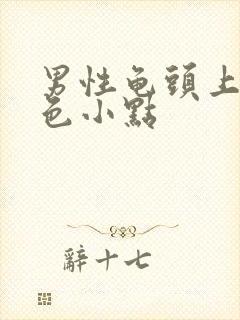 男性龟頭上
色小點
辭十七